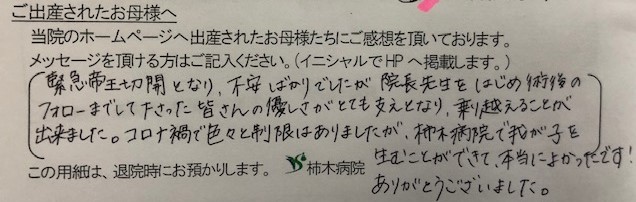 ご出産されたお母様へ
当院のホームページへ出産されたお母様たちにご感想を頂いております。
メッセージを頂ける方はご記入ください。(イニシャルでHPへ掲載します。)
緊急帝王切開となり、不安ばかりでしたが院長先生をはじめ術後の
フォローまでして下さった皆さんの優しさがとても支えとなり、乗り越えることが
出来ました。コロナ禍で色々と制限はありましたが、柿木病院で我が子を
生むことができて、本当によかったです!
ありがとうございました。
この用紙は、退院時にお預かりします。 柿木病院